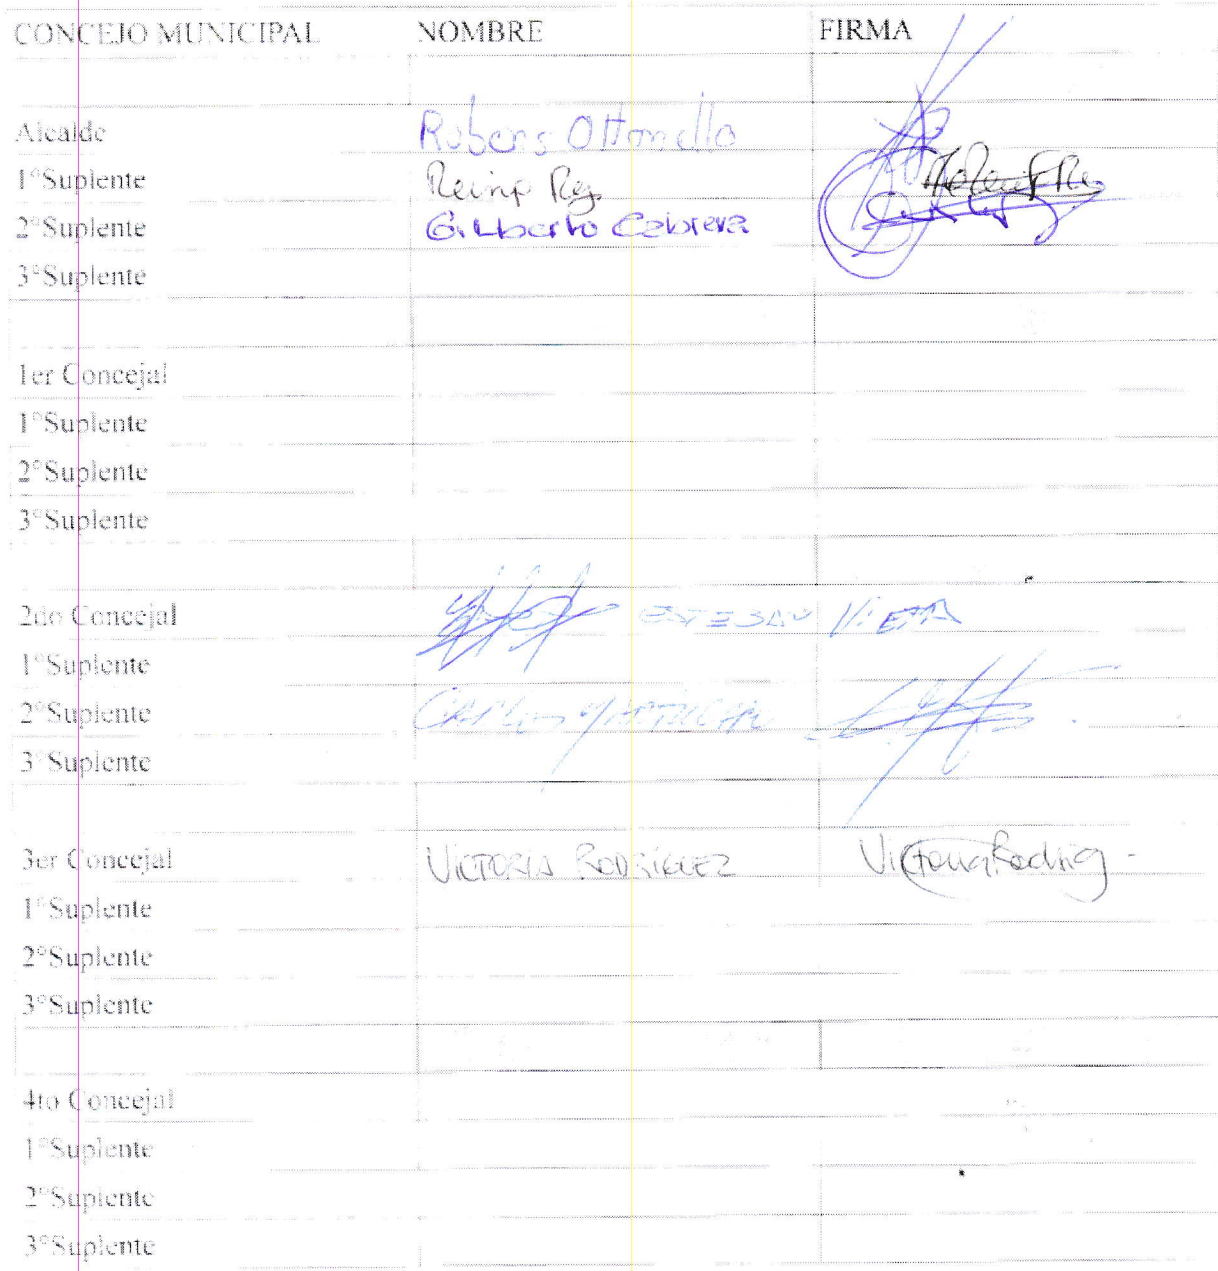 CONCEJO MUNICIPAL NOMBRE FIRMA
Alcalde Rubens Ottonello
1°Suplente
2°Suplente Gilberto Cabrera
3°Suplente
1er Concejal
1°Suplente
2°Suplente
3°Suplente
2do Concejal ESTEBAN VIERA
1°Suplente
2°Suplente CARLOS
3°Suplente
3er Concejal VICTORIA RODRIGUEZ Victoria Rodrig
1°Suplente
2°Suplente
3°Suplente
4to Concejal
1°Suplente
2°Suplente
3°Suplente